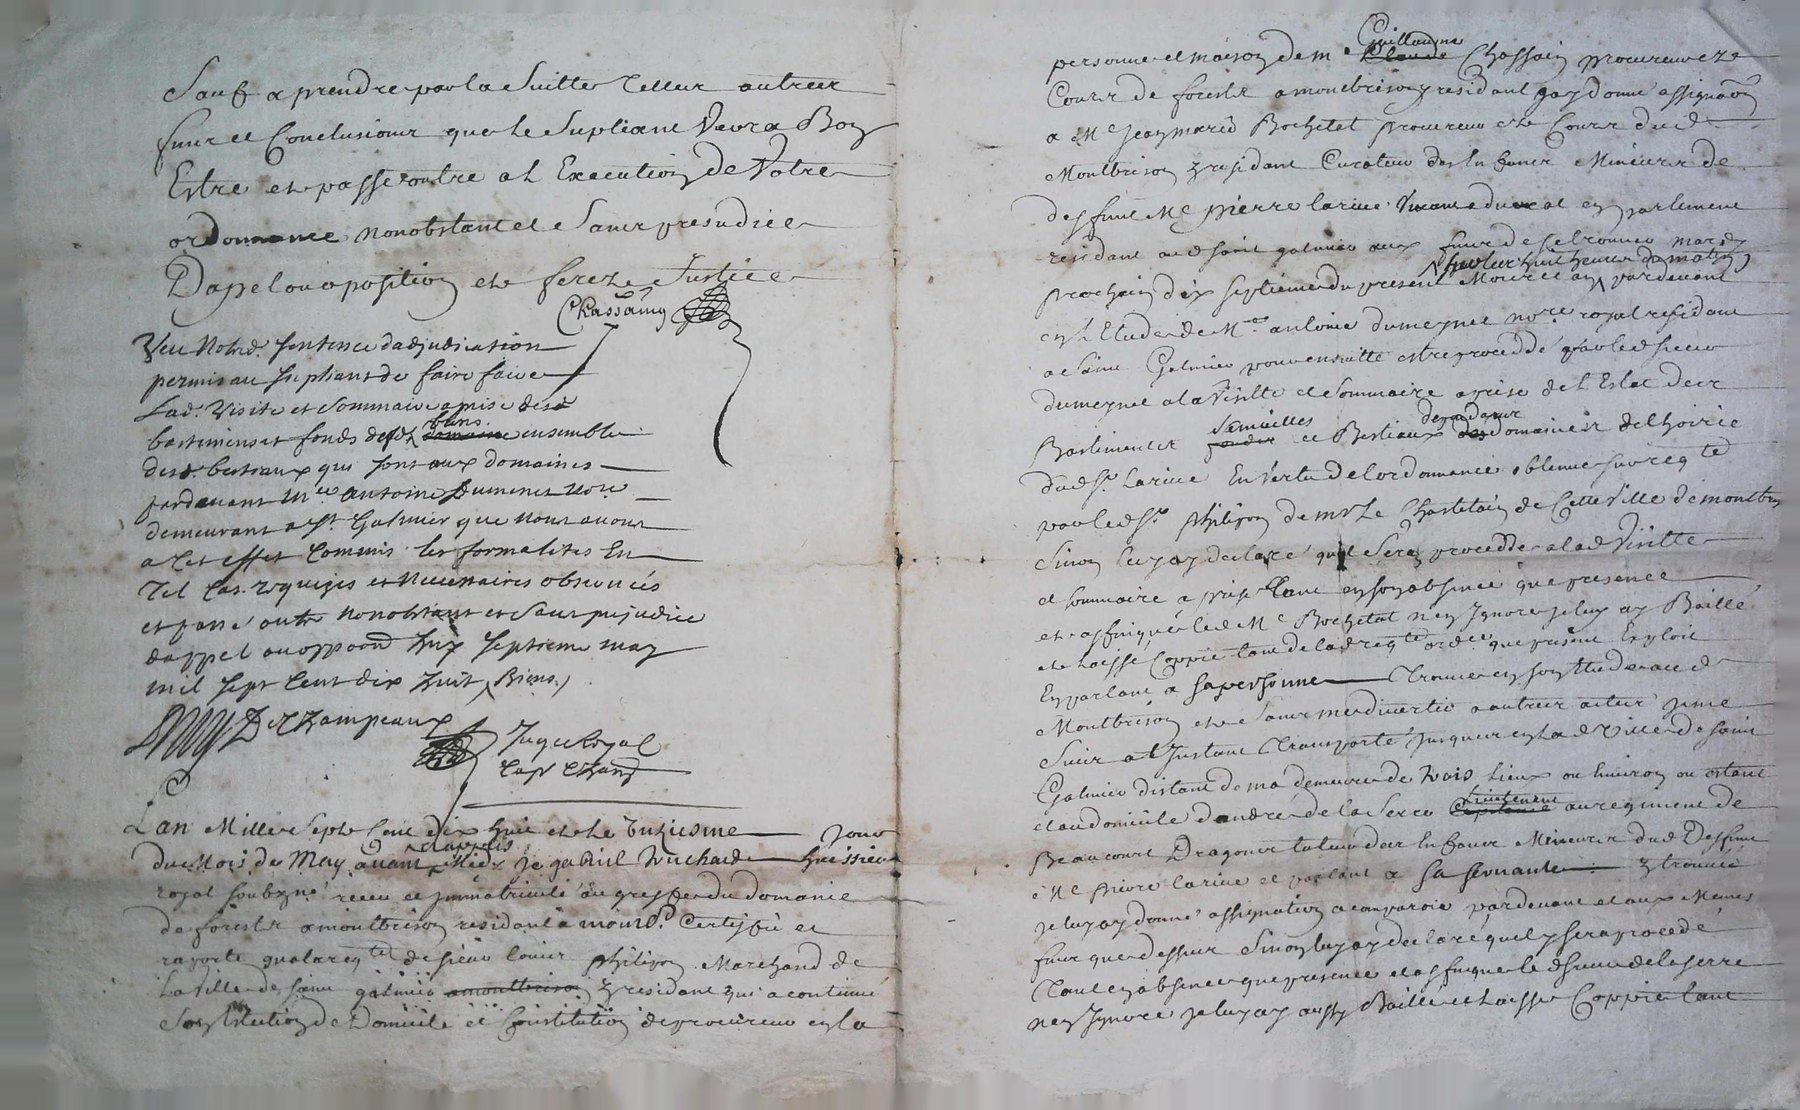 Sauf a prendre par la Suitte telles autres
fins et Conclusions que le Supliant verra Bon
Estre et passe outre a L Execution de Votre
ordonnance nonobstant et Sans presudice
Dapel ou oposition et ferez Justice
Chassaing
Veu Notred. sentence dadjudication
permis au supliant de faire faire
Lad. Visite et Sommaire aprise desd.
bastimens et fonds desd. biens ensemble
desd. bestiaux qui sont aux domaines
pardevant Me Antoine Dumeynet Nore
demeurant a St. Galmier que Nous avons
a Cet effet Commis les formalités En
Tel Cas requises et Necessaires observées
et passé outre Nonobstant et Sans prejudice
dappel ou oppoon dix septieme may
mil sept Cent dix huit
Dechampeaux
Juge Royal
Capl Chand
Lan Mille Sept Cent dix huit et le jour
du Mois de May avant Midy Je gabriel huissier
royal soubzné receu et jmmatriculé au greffe du domaine
de forestz a montbrison residant a Certiffie et
raporte qua la reqte de sieur Philipon Marchand de
La ville de saint galmier y residant qui a continué
Son Election de Domicile et Constitution de procureur en la
personne et maison de me Guillaume Chassain procureur ez
Cours de forestz a montbrison y residant jay donné assignaon
a Me Jean marie Bochetet procureur ez Cours dud.
Montbrison y residant Curateur des Enfans Mineurs de
deffunt Me pierre larive vivant advocat en parlement
residant aud. saint galmier aux fins de se trouver mardy
sur les huit heures du matin
prochain dix septieme du present Mois et an pardevant
en L Etude de Me antoine dumeynet nore royal residant
a Saint Galmier pour ensuitte estre procedé par led. sieur
dumeynet a la Visitte et Sommaire aprise de L Estat des
Bastimentz semailles et Bestiaux domaines de lhoirie
dud. Sr. Larive En Vertu de lordonnance obtenue sur reqte
par led. Sr. philipon de mr Le Chastelain de Cette Ville de montbri
Sinon luy ay declaré quil Sera procedde a lad. Visitte
et sommaire aprise tant en son absence que presence
et affin que led. Me Bochetet n'en Ignore je luy ay Baillé
et laissé Coppie tant de lad. reqte ordce que present Exploit
En parlant a sa personne trouvé en son Etude aud.
Montbrison et Sans me divertir a autres actes je me
Suis a L Instant Transporté jusques en lad. Ville de saint
Galmier distant de ma demeure de trois Lieux ou Environ ou estant
et au domicile dandré de la Serre Lieutenant au regiment de
Beaucourt Dragons tuteur des Enfans Mineurs dud. Deffunt
Me pierre larive et parlant a sa servante y trouvée
je luy ay donné assignation a comparoir pardevant et aux Memes
fins que dessus Sinon luy ay declaré quil y sera procedé
Tant en absence que presence et affin que led. sieur de la serre
n'en Ignore je luy ay aussy Baillé et laissé Coppie tant